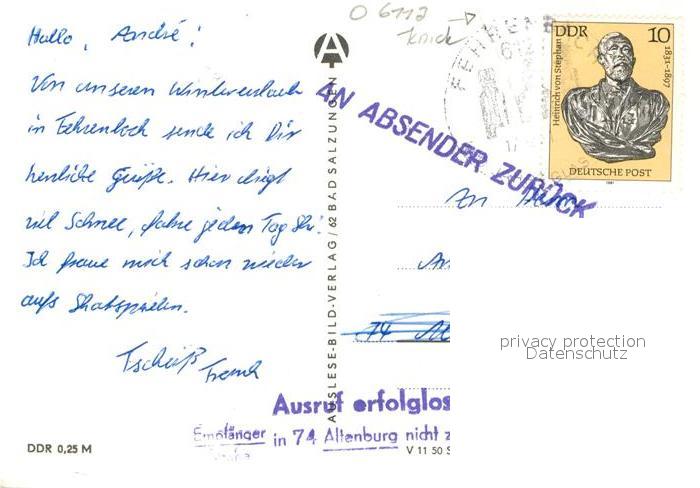 O 6112
knick
Hallo, André!
Von unseren Winterurlaub
in Fehrenbach sende ich Dir
herzliche Grüße. Hier liegt
viel Schnee, fahre jeden Tag Ski!
Ich freue mich schon wieder
aufs Skatspielen.
Tschüß
Frank
DDR 0,25 M
AUSLESE-BILD-VERLAG / 62 BAD SALZUNGEN
AN ABSENDER ZURÜCK
DDR 10
Heinrich von Stephan
1831-1897
DEUTSCHE POST
1981
An
74
privacy protection
Datenschutz
Ausruf erfolglos
Empfänger in 74 Altenburg nicht
V 11 50